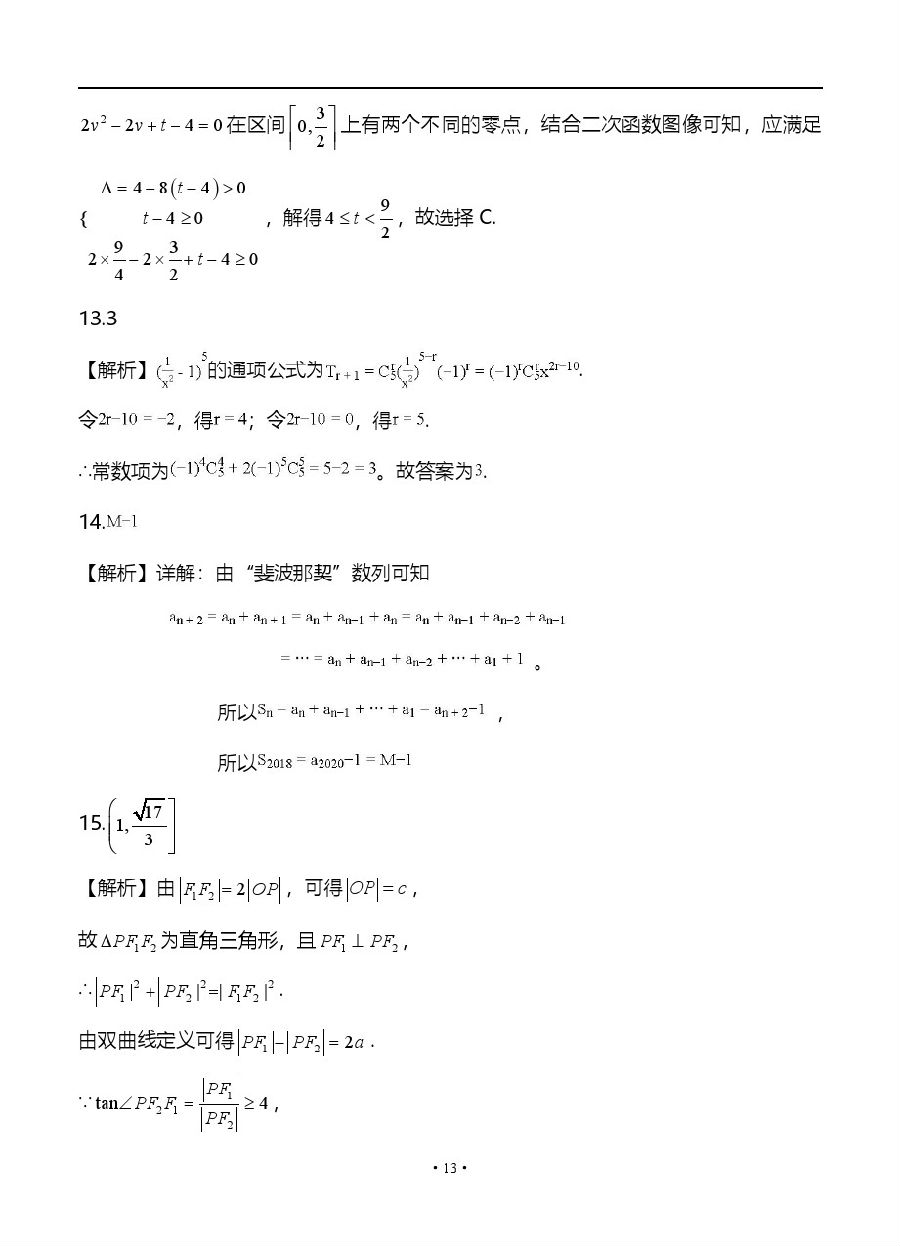 2v² − 2v + t − 4 = 0 在区间[0, 3/2]上有两个不同的零点，结合二次函数图像可知，应满足
{ Δ = 4 − 8(t − 4) > 0
t − 4 ≥ 0 ，解得 4 ≤ t < 9/2，故选择 C.
2 × 9/4 − 2 × 3/2 + t − 4 ≥ 0
13.3
【解析】(1/x² - 1)⁵的通项公式为T_{r+1} = C₅^r(1/x²)^{5−r}(−1)^r = (−1)^rC₅^rx^{2r−10}.
令2r−10 = −2，得r = 4；令2r−10 = 0，得r = 5.
∴常数项为(−1)⁴C₅⁴ + 2(−1)⁵C₅⁵ = 5−2 = 3。故答案为3.
14.M−1
【解析】详解：由“斐波那契”数列可知
a_{n+2} = a_n + a_{n+1} = a_n + a_{n−1} + a_n = a_n + a_{n−1} + a_{n−2} + a_{n−1}
= ⋯ = a_n + a_{n−1} + a_{n−2} + ⋯ + a₁ + 1 。
所以S_n = a_n + a_{n−1} + ⋯ + a₁ = a_{n+2}−1 ，
所以S₂₀₁₈ = a₂₀₂₀−1 = M−1
15.(1, √17/3]
【解析】由|F₁F₂| = 2|OP|，可得|OP| = c，
故ΔPF₁F₂为直角三角形，且PF₁ ⊥ PF₂，
∴|PF₁|² + |PF₂|² = |F₁F₂|².
由双曲线定义可得|PF₁| − |PF₂| = 2a.
∵tan∠PF₂F₁ = |PF₁|/|PF₂| ≥ 4，
· 13 ·